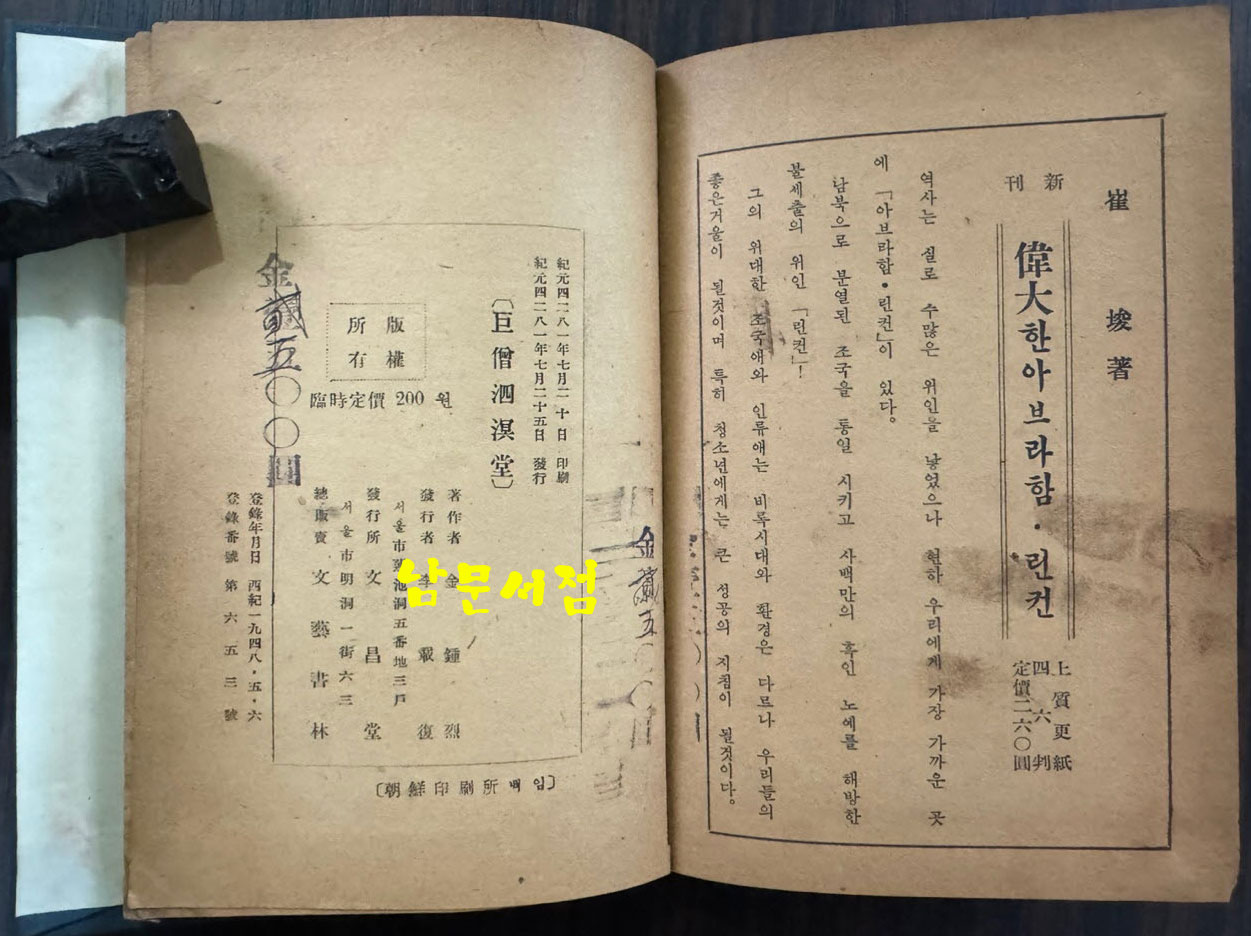 崔埈著
新刊
偉大한아브라함·린컨
上質更紙
四六判
定價二六〇圓
역사는 실로 수많은 위인을 낳었으나 현하 우리에게 가장 가까운 곳
에 「아브라함·린컨」이 있다.
남북으로 분열된 조국을 통일 시키고 사백만의 흑인 노예를 해방한
불세출의 위인 「린컨」!
그의 위대한 조국애와 인류애는 비록시대와 환경은 다르나 우리들의
좋은거울이 될것이며 특히 청소년에게는 큰 성공의 지침이 될것이다.
紀元四二八一年七月二十日 印刷
紀元四二八一年七月二十五日 發行
〔巨僧泗溟堂〕
版權
所有
臨時定價 200 원
著作者 金鍾烈
發行者 李 復
서울市 池洞五番地三戶
發行所 文昌堂
서울市明洞一街六三
總販賣 文藝書林
金貳五〇〇圓
登錄年月日 西紀一九四八·五·六
登錄番號 第六五三號
〔朝鮮印刷所 백임〕
金貳五〇〇
남문서점